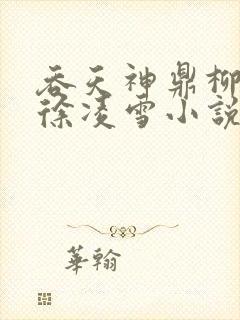 吞天神鼎柳
徐凌雪小說
華翰